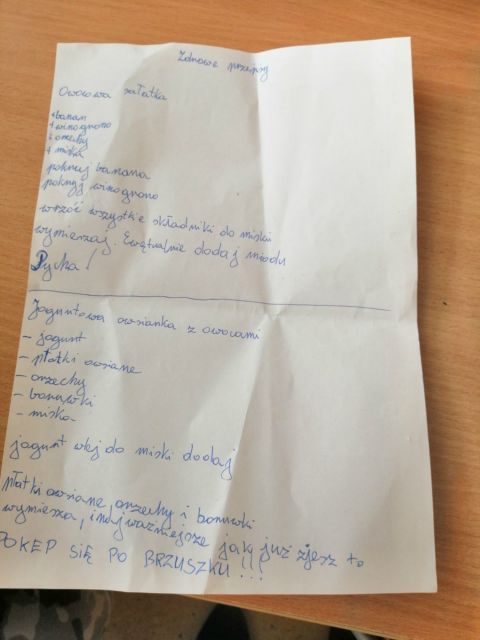 Zdrowe przepisy
Owocowa sałatka
+ banan
+ winogrono
+ orzechy
+ miska
pokruj banana
pokruj winogrono
wrzóć wszystkie składniki do miski
wymierzaj. Ewętualnie dodaj miodu
Pycha!
Jaguntowa owsianka z owocami
- jagunt
- płatki owsiane
- orzechy
- borówki
- miska
jagunt wlej do miski dodaj
płatki owsiane, orzechy i borówki
wymiesza, i najważniejsze jak już zjesz to
POKEP SIĘ PO BRZUSZKU!!!